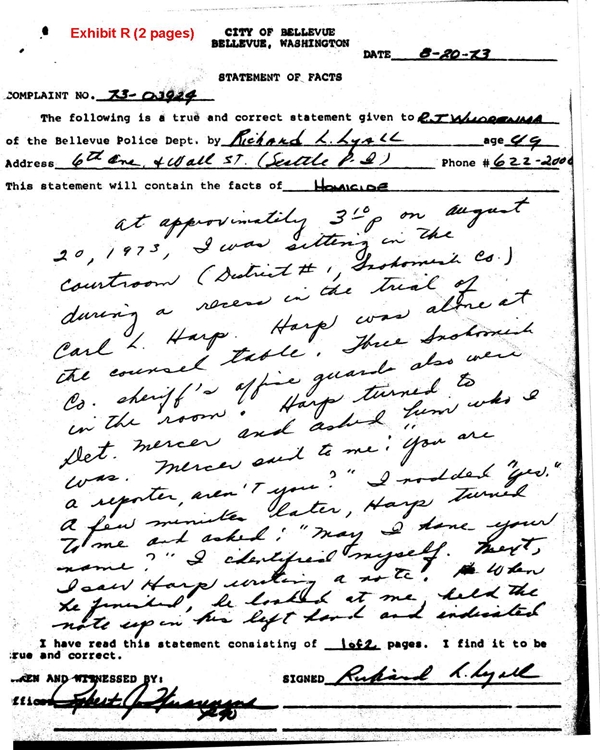 Exhibit R (2 pages)
CITY OF BELLEVUE
BELLEVUE, WASHINGTON
DATE 8-20-73
STATEMENT OF FACTS
COMPLAINT NO. 73-03924
The following is a true and correct statement given to R.J.
of the Bellevue Police Dept. by Richard L. Lyall age 49
Address 6th Ave. & Wall ST. (Seattle P.I) Phone # 622-2000
This statement will contain the facts of HOMICIDE
At approximately 3 10 p on August
20, 1973, I was sitting in the
courtroom (District #1, Snohomish Co.)
during a recess in the trial of
Carl L. Harp. Harp was alone at
the counsel table. Three Snohomish
Co. sheriff's office guards also were
in the room. Harp turned to
Det. Mercer and asked him who I
was. Mercer said to me: "You are
a reporter, aren't you?" I nodded "yes."
A few minutes later, Harp turned
to me and asked: "May I have your
name?" I identified myself. Next,
I saw Harp writing a note. When
he finished, he looked at me, held the
note up in his left hand and indicated
I have read this statement consisting of 1 of 2 pages. I find it to be
true and correct.
TAKEN AND WITNESSED BY: SIGNED Richard L. Lyall
Officer Robert J.